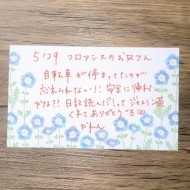 5/29 フロランスのお父さん
自転車が停まってたのが
忘れられない!! 安全に帰れ
たかな?? 日記読んでジャスミン茶
くれてありがとう
かれん